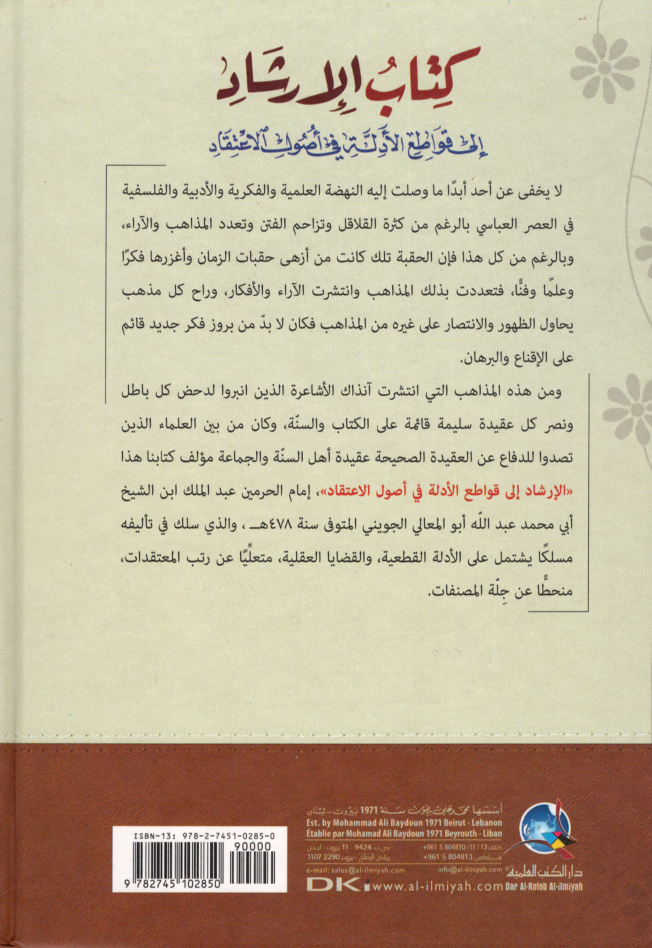 كِتَابُ الإِرشَادِ
إلى قَوَاطِعِ الأَدِلَّةِ في أُصُولِ الاعْتِقَادِ
لا يخفى عن أحد أبدًا ما وصلت إليه النهضة العلمية والفكرية والأدبية والفلسفية
في العصر العباسي بالرغم من كثرة القلاقل وتزاحم الفتن وتعدد المذاهب والآراء،
وبالرغم من كل هذا فإن الحقبة تلك كانت من أزهى حقبات الزمان وأغزرها فكرًا
وعلمًا وفنًّا، فتعددت بذلك المذاهب وانتشرت الآراء والأفكار، وراح كل مذهب
يحاول الظهور والانتصار على غيره من المذاهب فكان لا بدّ من بروز فكر جديد قائم
على الإقناع والبرهان.
ومن هذه المذاهب التي انتشرت آنذاك الأشاعرة الذين انبروا لدحض كل باطل
ونصر كل عقيدة سليمة قائمة على الكتاب والسنّة، وكان من بين العلماء الذين
تصدوا للدفاع عن العقيدة الصحيحة عقيدة أهل السنّة والجماعة مؤلف كتابنا هذا
«الإرشاد إلى قواطع الأدلة في أصول الاعتقاد»، إمام الحرمين عبد الملك ابن الشيخ
أبي محمد عبد اللّه أبو المعالي الجويني المتوفى سنة ٤٧٨هـ، والذي سلك في تأليفه
مسلكًا يشتمل على الأدلة القطعية، والقضايا العقلية، متعلّيًا عن رتب المعتقدات،
منحطًّا عن جِلّة المصنفات.
أسسها محمد علي بيضون سنة 1971 بيروت - لبنان
Est. by Mohammad Ali Baydoun 1971 Beirut - Lebanon
Établie par Mohamad Ali Baydoun 1971 Beyrouth - Liban
هاتف +961 5 804810/11/12
فاكس +961 5 804813
ص.ب 11-9424 بيروت - لبنان
رياض الصلح - بيروت 1107 2290
e-mail: sales@al-ilmiyah.com
info@al-ilmiyah.com
DKi www.al-ilmiyah.com
دار الكتب العلمية
Dar Al-Kotob Al-ilmiyah
ISBN-13: 978-2-7451-0285-0
90000
9 782745 102850